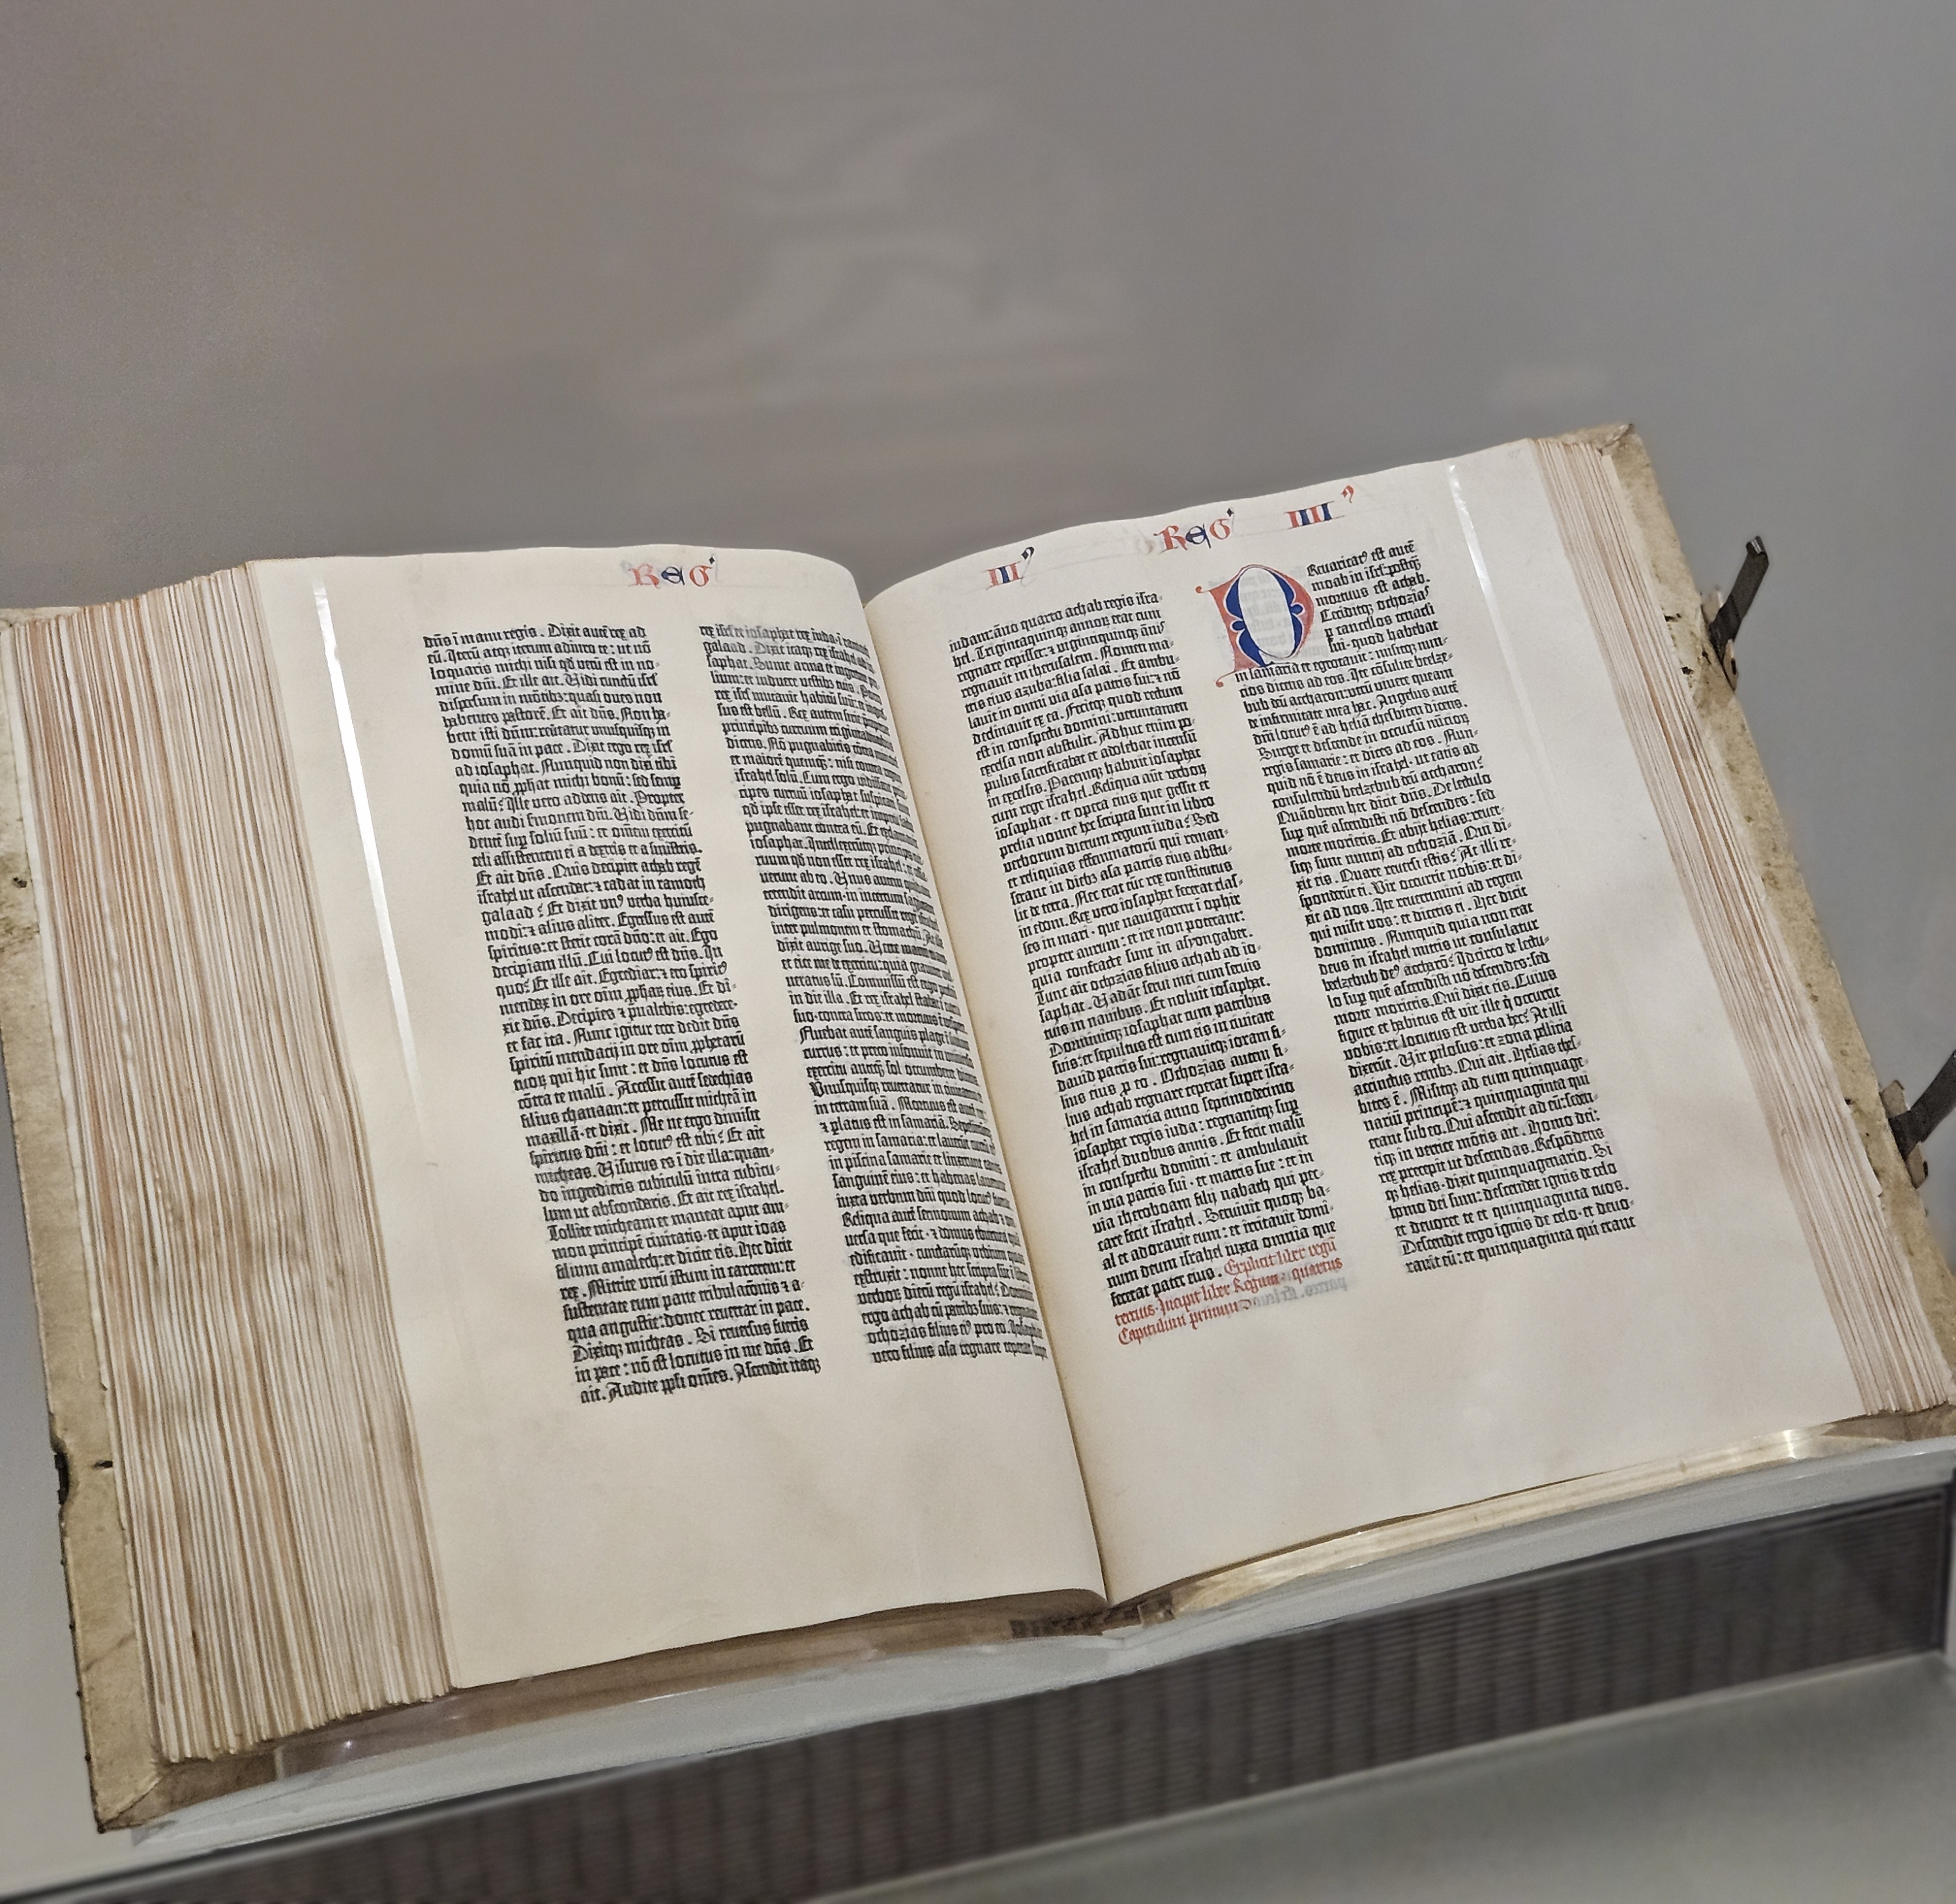 REG
dñs ĩ manu regis. Dixit autē rex ad
eũ. Iterũ atqʒ iterum adiuro te: ut nõ
loquaris michi nisi qđ verũ est in no-
mine dñi. Et ille ait. Vidi cunctũ isrl
dispersum in mõtibʒ: quasi oves non
habentes pastorē. Et ait dñs. Non ha-
bent isti dñm: revertatur unusquisqʒ in
domũ suã in pace. Dixit ergo rex isrl
ad iosaphat. Numquid non dixi tibi
quia nõ ꝓphat michi bonũ: sed semp
malũ? Ille vero addens ait. Propter
hoc audi sermonem dñi. Vidi dñm se-
dentē sup soliũ suũ: et omnem exercitũ
celi assistentem ei a dextris et a sinistris.
Et ait dñs. Quis decipiet achab regē
israhel ut ascendat: ⁊ cadat in ramoth
galaad? Et dixit unꝰ verba huiusce-
modi: ⁊ alius aliter. Egressus est autē
spiritus: et stetit corã dño: et ait. Ego
decipiam illũ. Cui locutꝰ est dñs. In
quo? Et ille ait. Egrediar: ⁊ ero spiritꝰ
mendax in ore oĩm ꝓphaꝝ eius. Et di-
xit dñs. Decipies ⁊ pualebis: egredere:
et fac ita. Nunc igitur ecce dedit dñs
spiritũ mendacij in ore oĩm ꝓphetarũ
tuoꝝ qui hic sunt: et dñs locutus est
cõtra te malũ. Accessit autē sedechias
filius chanaan: et percussit micheã in
maxillã: et dixit. Me ne ergo dimisit
spiritus dñi: et locutꝰ est tibi? Et ait
micheas. Visurus es ĩ die illa: quan-
do ingredieris cubiculũ intra cubicu-
lum ut abscondaris. Et ait rex israhel.
Tollite micheam et maneat aput am-
mon principē civitatis: et aput ioas
filium amalech: et dicite eis. Hec dicit
rex. Mittite virũ istum in carcerem: et
sustentate eum pane tribulacõnis ⁊ a-
qua angustie: donec revertar in pace.
Dixitqʒ micheas. Si reversus fueris
in pace: nõ est locutus in me dñs. Et
ait. Audite ppli om̃es. Ascendit itaqʒ
rex isrl et iosaphat rex iuda ĩ ramoth
galaad. Dixit itaqʒ rex israhel ad
saphat. Sume arma et ingredere
lium: et induere vestibʒ tuis.
rex isrl mutavit habitũ suũ: et
sus est bellũ. Rex autem sirie
principibʒ curruum triginta
dicens. Nõ pugnabitis cõtra
et maiorē quempiã: nisi contra
israhel solũ. Cum ergo vidissent
cipes curruũ iosaphat suspicati
qđ ipse esset rex israhel: et impetu
pugnabant contra eũ. Et exclamavit
iosaphat. Intellexerũtqʒ principes
ruum qđ non esset rex israhel: et
verunt ab eo. Unus autem
tetendit arcum in incertum sagittã
dirigens: et casu percussit regē israhel
inter pulmonem et stomachũ. At ille
dixit aurige suo. Verte manum
et eice me de exercitu: quia graviter
neratus sũ. Commissũ est ergo
in die illa. Et rex israhel stabat ĩ curru
suo contra siros: et mortuus ē vespere.
Fluebat autē sanguis plage ĩ sinum
currus: et preco insonuit in universo
exercitu anteqʒ sol occumberet dicens.
Unusquisqʒ revertatur in civitatem: et
in terram suã. Mortuus est autē rex
⁊ platus est in samariã. Sepelieruntqʒ
regem in samaria: et laverũt currũ ei
in piscina samarie et linxerunt canes
sanguinē eius: et habenas laverunt
iuxta verbum dñi quod locutꝰ fuerat.
Reliqua autē sermonum achab ⁊ uni-
versa que fecit: ⁊ domus eburnea quã
edificavit: cunctarũqʒ urbium quas
extruxit: nonne hec scripta sũt ĩ libro
verboꝝ dierũ regũ israhel? Dormivit
ergo achab cũ patribʒ suis: ⁊ regnavit
ochozias filius eiꝰ pro eo. Iosaphat
vero filius asa regnare ceperat super
III
iudam: ãno quarto achab regis isra-
hel. Trigintaquinqʒ annoꝝ erat cum
regnare cepisset: ⁊ vigintiquinqʒ ãnis
regnavit in iherusalem. Nomen ma-
tris eius azuba: filia salai. Et ambu-
lavit in omni via asa patris sui: ⁊ nõ
declinavit ex ea. Fecitqʒ quod rectum
est in conspectu domini: verumtamen
excelsa non abstulit. Adhuc enim po-
pulus sacrificabat et adolebat incensũ
in excelsis. Pacemqʒ habuit iosaphat
cum rege israhel. Reliqua aut verboꝝ
iosaphat: et opera eius que gessit et
prelia nonne hec scripta sunt in libro
verborum dierum regum iuda? Sed
et reliquias effeminatorũ qui reman-
serant in diebʒ asa patris eius abstu-
lit de terra. Nec erat tũc rex constitutus
in edom. Rex vero iosaphat fecerat clas-
ses in mari: que navigarent ĩ ophir
propter aurum: et ire non potuerant:
quia confracte sunt in asyongaber.
Tunc ait ochozias filius achab ad io-
saphat. Vadãt servi mei cum servis
tuis in navibus. Et noluit iosaphat.
Dormivitqʒ iosaphat cum patribus
suis: et sepultus est cum eis in civitate
david patris sui: regnavitqʒ ioram fi-
lius eius p eo. Ochozias autem fi-
lius achab regnare ceperat super isra-
hel in samaria anno septimodecimo
iosaphat regis iuda: regnavitqʒ sup
israhel duobus annis. Et fecit malũ
in conspectu domini: et ambulavit
in via patris sui: et matris sue: et in
via iheroboam filij nabath qui pec-
care fecit israhel. Servivit quoqʒ ba-
al et adoravit eum: et irritavit domi-
num deum israhel iuxta omnia que
fecerat pater eius. Explicit liber regũ
tercius. Incipit liber Regum quartus
Capitulum primum
REG IIII
Prevaricatꝰ est autē
moab in isrl: postqʒ
mortuus est achab.
Ceciditqʒ ochozias
p cancellos cenacli
sui: quod habebat
in samaria et egrotavit: misitqʒ nun-
cios dicens ad eos. Ite cõsulite beelze-
bub deũ accharon: utrũ vivere queam
de infirmitate mea hac. Angelus autē
dñi locutꝰ ē ad heliã thesbiten dicens.
Surge et descende in occursũ nũcioꝝ
regis samarie: et dices ad eos. Num-
quid nõ ē deus in israhel: ut eatis ad
consulendũ beelzebub deũ accharon?
Quãobrem hec dicit dñs. De lectulo
sup quē ascendisti nõ descendes: sed
morte morieris. Et abijt helias: rever-
siqʒ sunt nuncij ad ochoziã. Qui di-
xit eis. Quare reversi estis? At illi re-
sponderũt ei. Vir occurrit nobis: et di-
xit ad nos. Ite revertimini ad regem
qui misit vos: et dicetis ei. Hec dicit
dominus. Numquid quia non erat
deus in israhel mittis ut consulatur
beelzebub deꝰ accharõ? Idcirco de lectu-
lo sup quē ascendisti nõ descendes: sed
morte morieris. Qui dixit eis. Cuius
figure et habitus est vir ille q̇ occurrit
vobis: et locutus est verba hec? At illi
dixerũt. Vir pilosus: et zona pellicia
accinctus renibʒ. Qui ait. Helias thes-
bites ē. Misitqʒ ad eum quinquage-
nariũ principē: ⁊ quinquaginta qui
erant sub eo. Qui ascendit ad eũ: seden-
tiqʒ in vertice mõtis ait. Homo dei:
rex precepit ut descendas. Respõdens
qʒ helias: dixit quinquagenario. Si
homo dei sum: descendat ignis de celo
et devoret te et quinquaginta tuos.
Descendit ergo ignis de celo: et devo-
ravit eũ: et quinquaginta qui erant